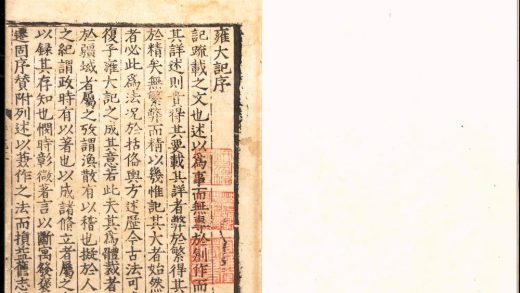 雍大記序
記疏載之文也述以為事而無專於創作而
其詳述則貴得其要載其詳者弊於繁得其
於精矣無繁弊而精以幾惟記其大者始然
者必此為法况於括俻輿方述歷今古法可
復予雍大記之成其意若此夫其為體裁者
於疆域者屬之攷謂渙散有以稽也擬於人
之紀謂政時有以著也以成諸修立者屬之
以録其存知也憫時彰徵著言以斷寓發褒
遷固序贊附列述以裁作之法而損益舊志